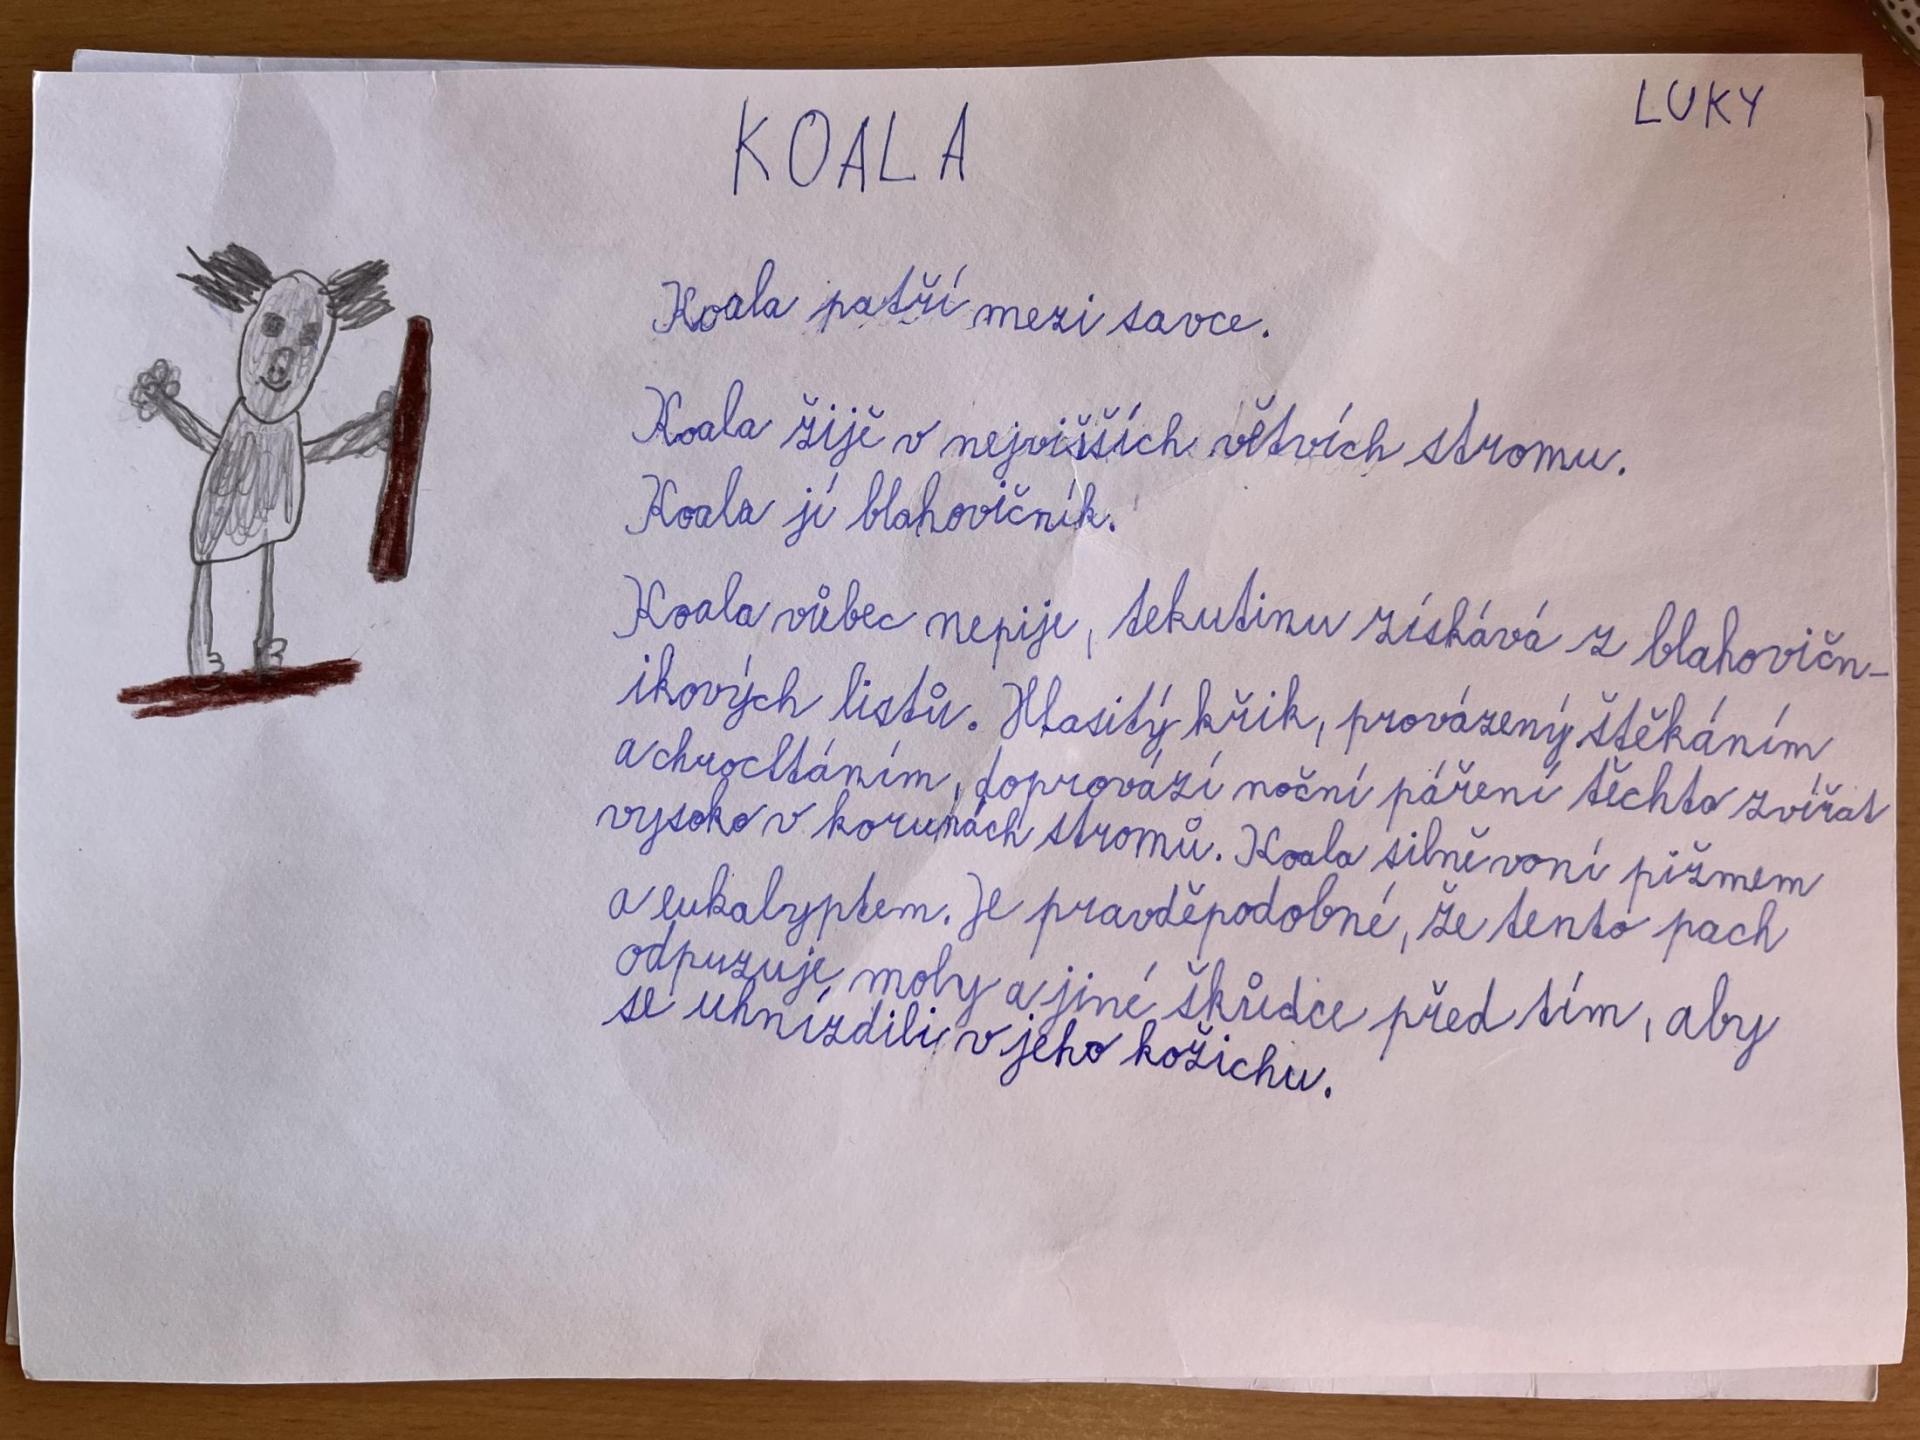 LUKY
KOALA
Koala patří mezi savce.
Koala žijě v nejvišších větvích stromu.
Koala jí blahovičník.
Koala vůbec nepije, tekutinu získává z blahovičn-
ikových listů. Hlasitý křik, provázený štěkáním
a chrocltáním, doprovází noční páření těchto zvířat
vysoko v korunách stromů. Koala silně voní pižmem
a eukalyptem. Je pravděpodobné, že tento pach
odpuzuje moly a jiné škůdce před tím, aby
se uhnízdili v jeho kožichu.